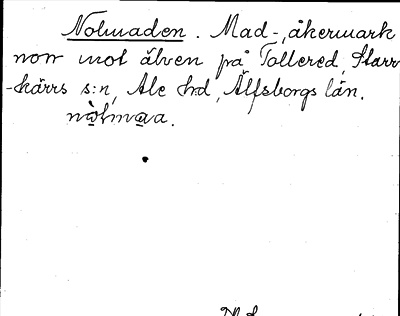 Nolmaden. Mad-, åkermark
norr mot älven på Tollered, Starr
-kärrs s:n, Ale hd, Älfsborgs län.